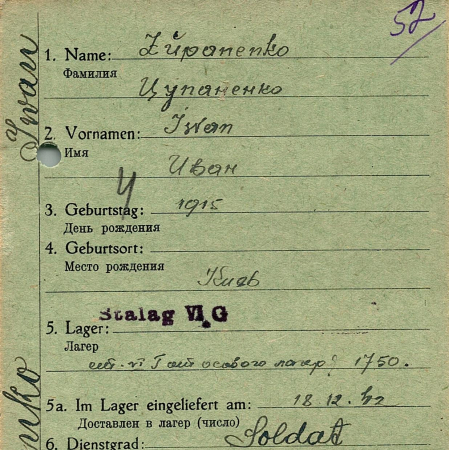 52
1. Name: Züpanenko
Фамилия
Цупаненко
2. Vornamen: Iwan
Имя
Иван
3. Geburtstag: 1915
День рождения
4. Geburtsort:
Место рождения
Киев
Stalag VI G
5. Lager:
Лагер
лагер 1750.
5a. Im Lager eingeliefert am: 18.12.42
Доставлен в лагер (число)
6. Dienstgrad: Soldat
Iwan
nko